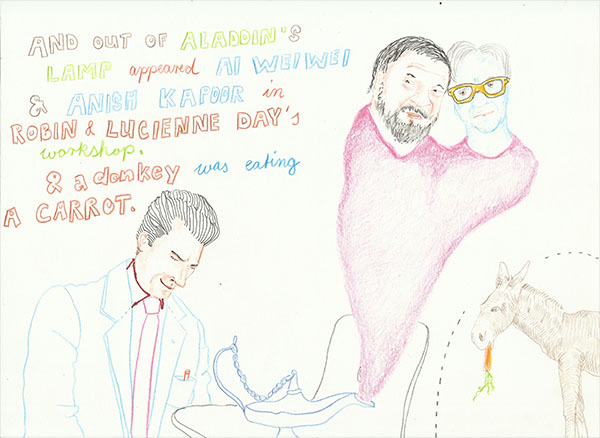 AND OUT OF ALADDIN'S
LAMP appeared AI WEIWEI
& ANISH KAPOOR in
ROBIN & LUCIENNE DAY'S
workshop.
& a donkey was eating
A CARROT.